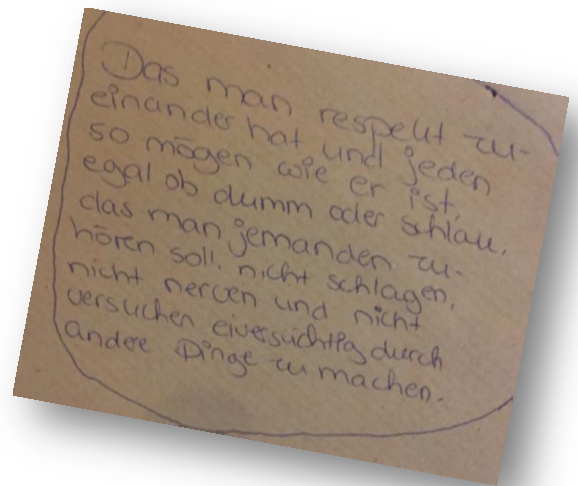 Das man respekt zu-
einander hat und jeden
so mögen wie er ist,
egal ob dumm oder schlau.
das man jemanden zu-
hören soll. nicht schlagen,
nicht nerven und nicht
versuchen eiversüchtig durch
andere Dinge zu machen.